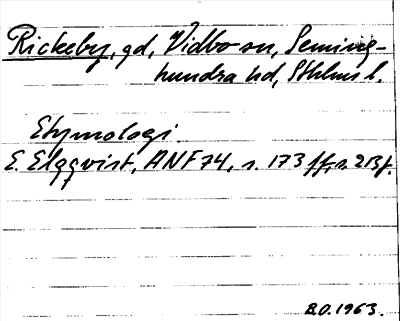 Rickeby, gd, Vidbo sn, Seming-
hundra hd, Sthlms l.
Etymologi
E. Elgqvist, ANF 74, s. 173 ff, s. 213 f.
B.O. 1963.